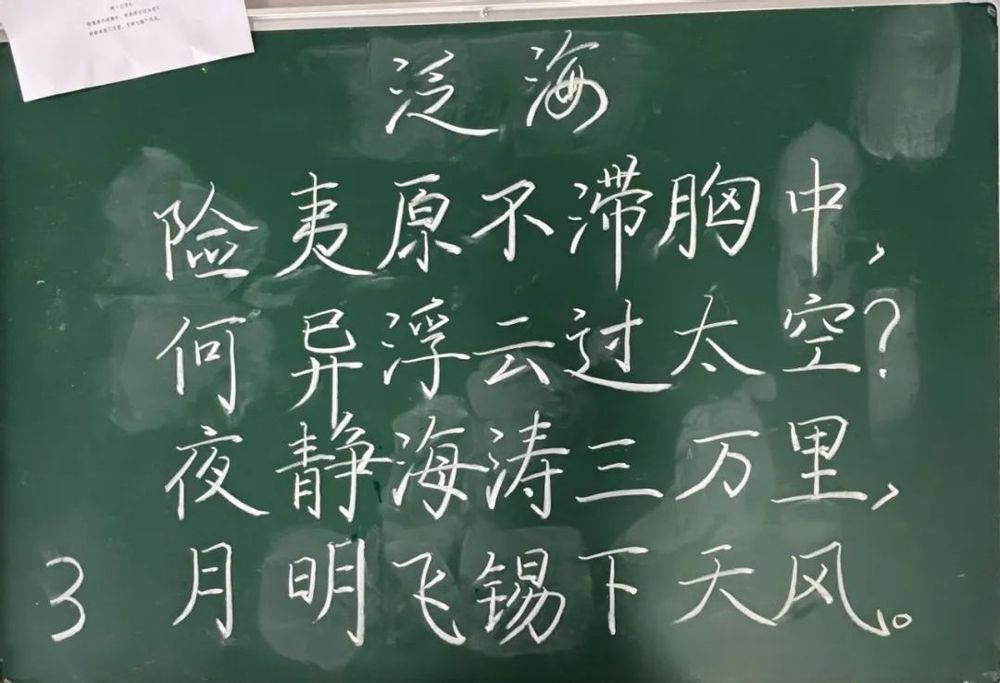 泛海
险夷原不滞胸中,
何异浮云过太空?
夜静海涛三万里,
3 月明飞锡下天风。